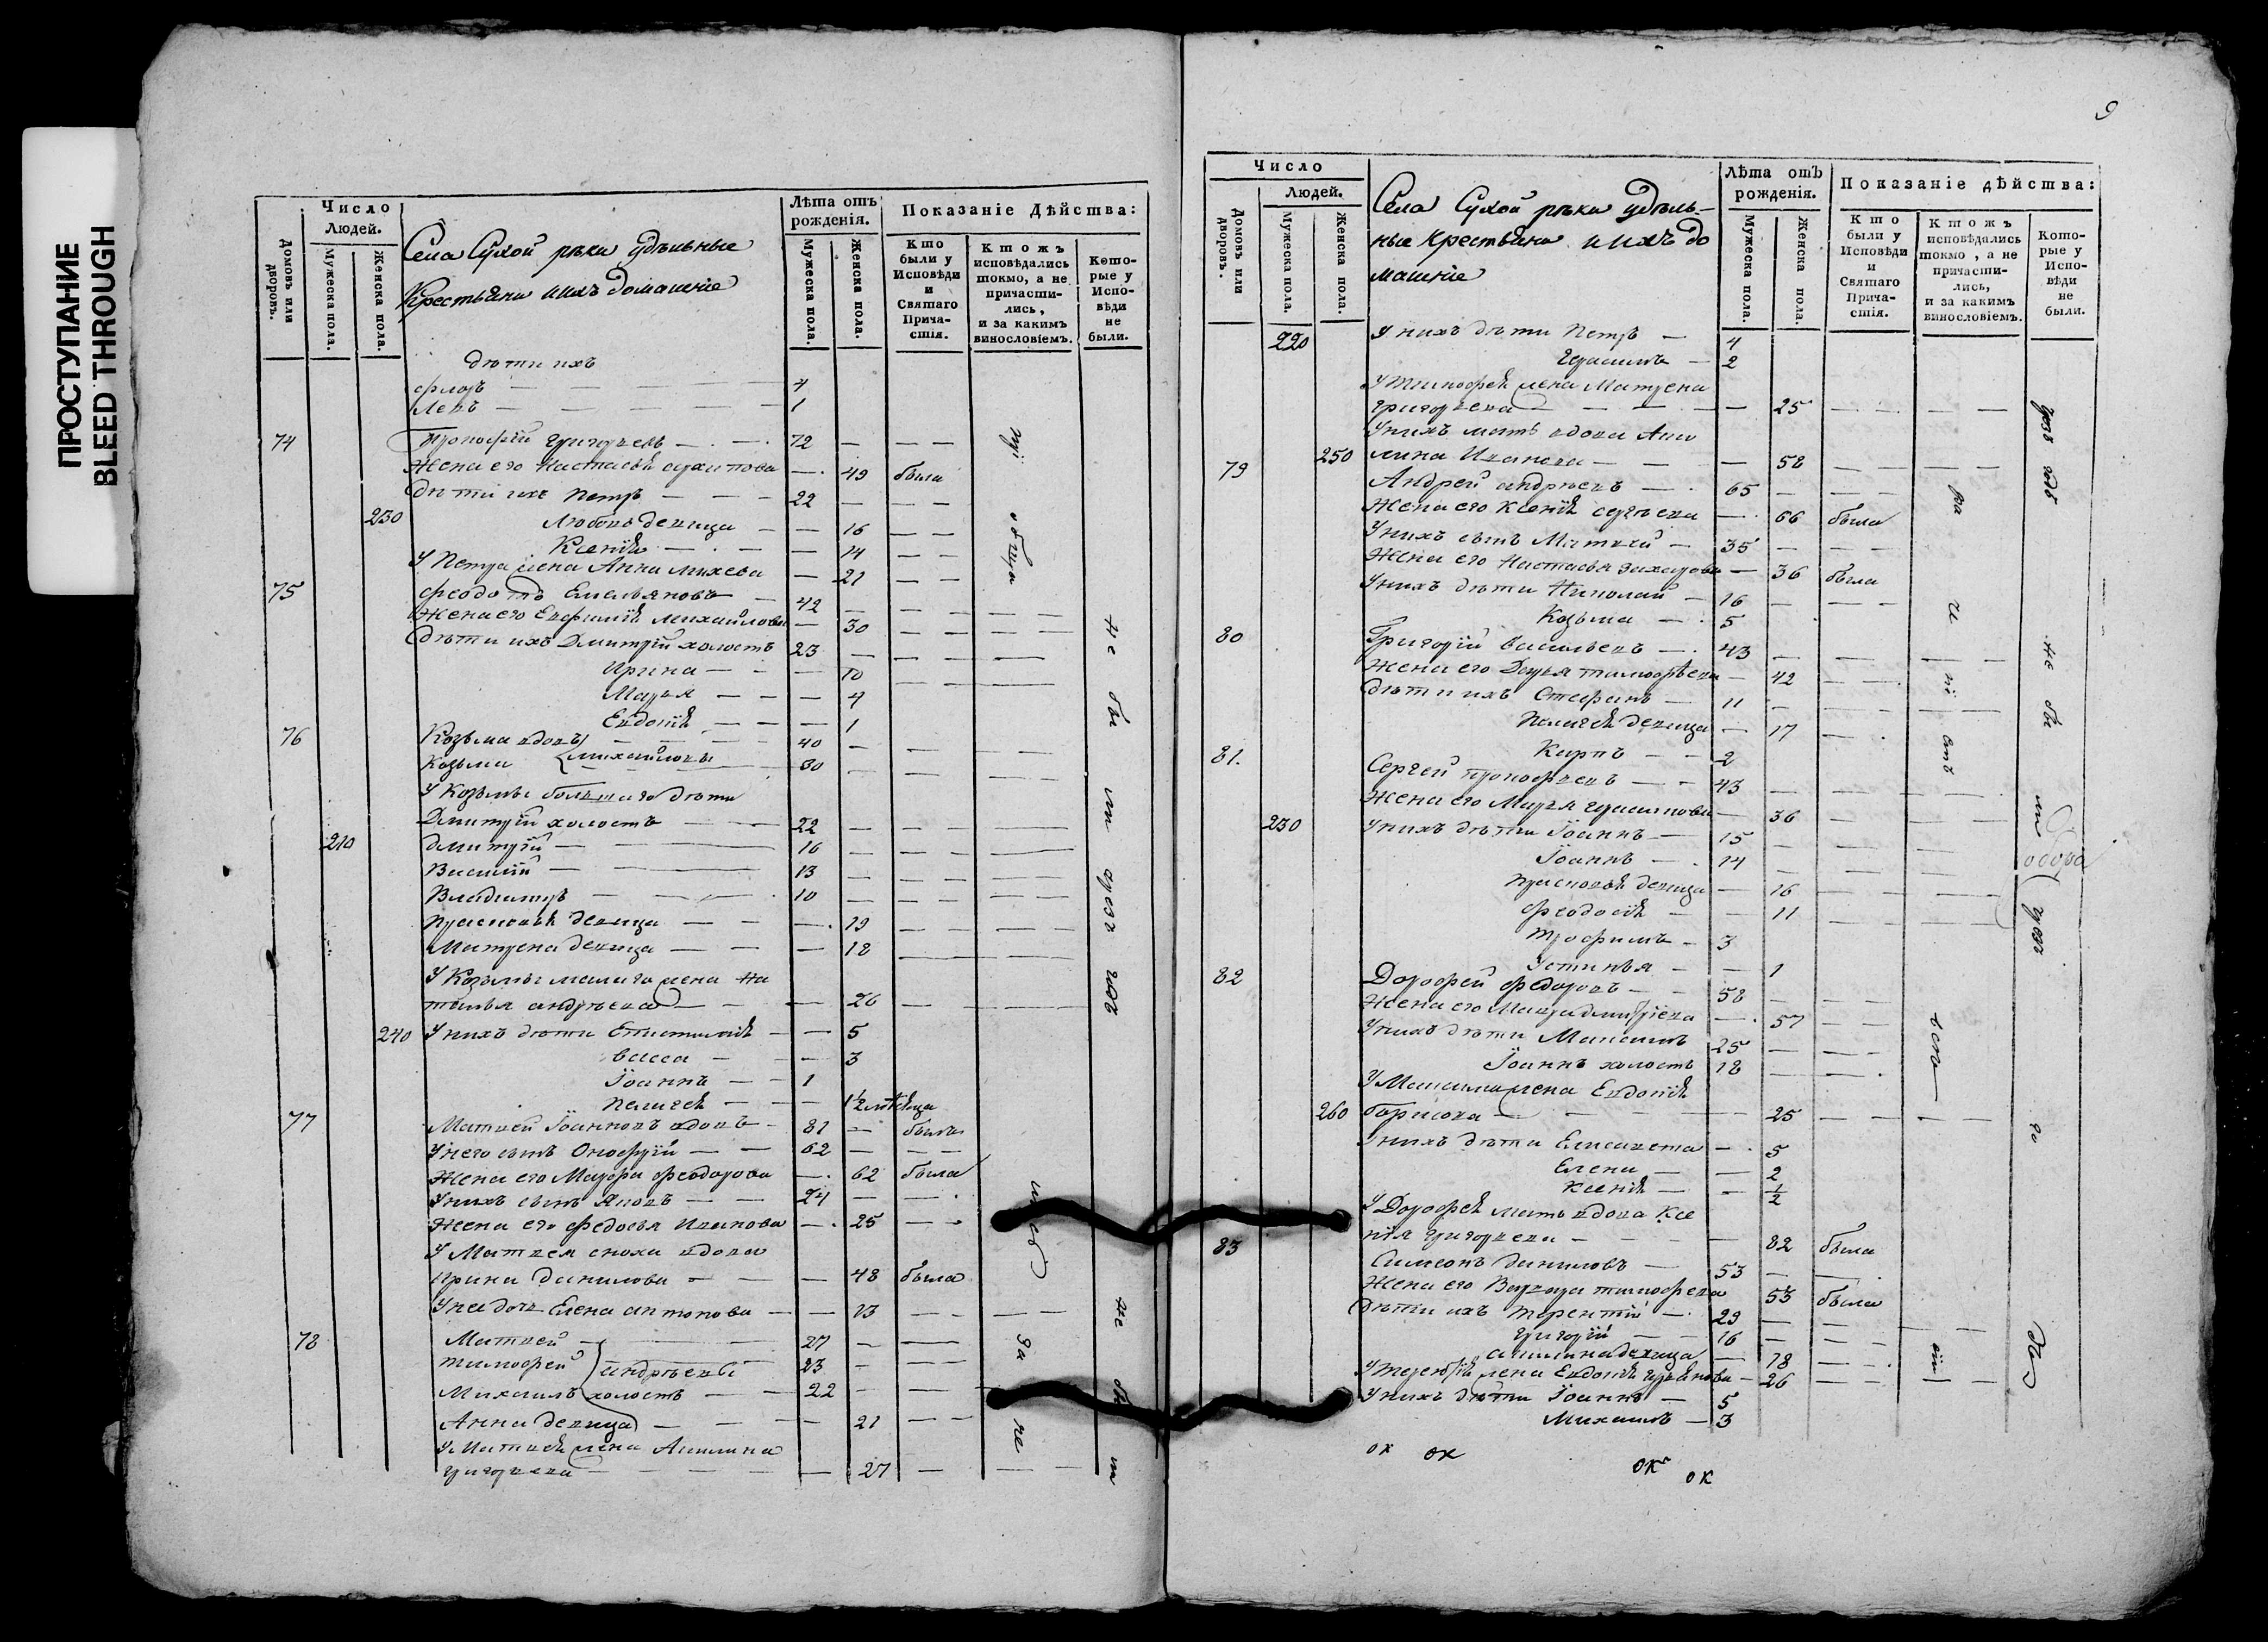 ПРОСТУПАНИЕ
BLEED THROUGH
Число
Людей.
Домовъ или дворовъ.
Мужеска пола.
Женска пола.
Села Сухой рѣки удѣльные
Крестьяни и ихъ домашніе
Лѣта отъ рожденія.
Мужеска пола.
Женска пола.
Показаніе Дѣйства:
Кто были у Исповѣди и Святаго Причастія.
Ктожъ исповѣдались токмо, а не причастились, и за какимъ винословіемъ.
Которые у Исповѣди не были.
дѣти ихъ
Флоръ — 4
Левъ — 1
74 Прокофій Григорьевъ — 72
Жена его Настасья — 49 была
Дѣти ихъ Петръ — 22
230 Любовь девица — 16
Ксенія — 14
У Петра жена Анна Михева — 21
75 Феодотъ Емельяновъ — 42
Жена его Евфимія Михайлова — 30
Дѣти ихъ Дмитрій холостъ 23
Ирина — 10
Марья — 4
Евдокія — 1
76 Козьма вдовъ — 40
Козьма Михайловы — 30
У Козьмы большаго дѣти
Дмитрій холостъ — 22
210 Дмитрій — 16
Василій — 13
Владимиръ — 10
Прасковья девица — 19
Матрена девица — 18
У Козьмы малаго жена На
талья андрѣева — 26
240 У нихъ дѣти Епистимія — 5
Васса — 3
Іоаннъ — 1
Пелагея — 1/2
77 Матвей Іоанновъ вдовъ — 81 — былъ
У него сынъ Онофрій — 62
Жена его Марфа Феодорова — 62 была
У нихъ сынъ Яковъ — 24
Жена его Федосья Иванова — 25
У Матвея сноха вдова
Ирина Данилова — 48 была
У нея дочь Елена антонова — 13
78 Матвей — 27
Тимофей андрѣевы 23
Михаилъ холостъ — 22
Анна девица — 21
У Матвея жена Акилина
Григорьева — 27
не бы
9
Число
Людей.
Домовъ или дворовъ.
Мужеска пола.
Женска пола.
Села Сухой рѣки удѣль-
ные крестьяна и ихъ до
машніе
Лѣта отъ рожденія.
Мужеска пола.
Женска пола.
Показаніе дѣйства:
Кто были у Исповѣди и Святаго Причастія.
Ктожъ исповѣдались токмо, а не причастились, и за какимъ винословіемъ.
Которые у Исповѣди не были.
220 У нихъ дѣти Петръ — 4
Герасимъ — 2
У Тимофея жена Матрена
Григорьева — 25
У нихъ мать вдова Аки
250 лина Иванова — 58
79 Андрей андрѣевъ — 65
Жена его Ксенія Сергѣева — 66 была
У нихъ сынъ Матвей — 35
Жена его Настасья Захарова — 36 была
У нихъ дѣти Николай — 16
Козьма — 5
80 Григорій Васильевъ — 43
Жена его Дарья Тимофѣева — 42
Дѣти ихъ Стефанъ — 11
Пелагея девица — 17
Карпъ — 2
81. Сергей Прокофьевъ — 43
Жена его Марья Герасимова — 36
230 У нихъ дѣти Іоаннъ — 15
Іоаннъ — 14
Прасковья девица — 16
Феодосія — 11
Трофимъ — 3
Устинья — 1
82 Дорофей Федоровъ — 58
Жена его Мавра Дмитріева — 57
У нихъ дѣти Максимъ 25
Іоаннъ холостъ 18
У Максима жена Евдокія
260 Борисова — 25
У нихъ дѣти Елисавета — 5
Елена — 2
Ксенія — 1/2
У Дорофея мать вдова Ксе
нія Григорьева — 82 была
83 Симеонъ Даниловъ — 53
Жена его Варвара Тимофеева 53 была
Дѣти ихъ Терентій — 29
Григорій — 16
акилина девица — 18
У Терентія жена Евдокія — 26
У нихъ дѣти Іоаннъ — 5
Михаилъ — 3
не бы
ок ок ок ок